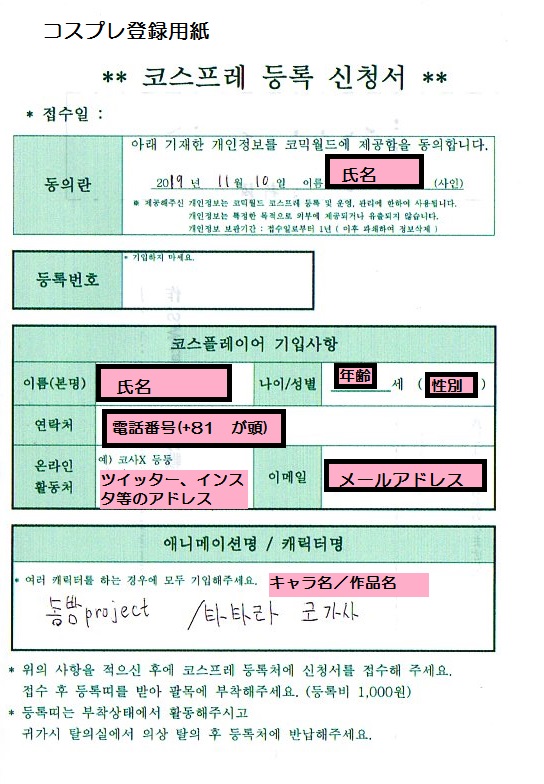 コスプレ登録用紙
** 코스프레 등록 신청서 **
* 접수일 :
동의란
아래 기재한 개인정보를 코믹월드에 제공함을 동의합니다.
2019 년 11 월 10 일 이름 氏名 (사인)
* 제공해주신 개인정보는 코믹월드 코스프레 등록 및 운영, 관리에 한하여 사용됩니다.
개인정보는 특정한 목적으로 외부에 제공되거나 유출되지 않습니다.
개인정보 보관기간 : 접수일로부터 1년 ( 이후 파쇄하여 정보삭제 )
등록번호
* 기입하지 마세요.
코스플레이어 기입사항
이름(본명) 氏名 나이/성별 年齢 세 ( 性別 )
연락처 電話番号(+81 が頭)
온라인 활동처
예) 코사X 등등
ツイッター、インス
タ等のアドレス
이메일 メールアドレス
애니메이션명 / 캐릭터명
* 여러 캐릭터를 하는 경우에 모두 기입해주세요. キャラ名／作品名
동방project /타타라 코가사
* 위의 사항을 적으신 후에 코스프레 등록처에 신청서를 접수해 주세요.
접수 후 등록띠를 받아 팔목에 부착해주세요. (등록비 1,000원)
* 등록띠는 부착상태에서 활동해주시고
귀가시 탈의실에서 의상 탈의 후 등록처에 반납해주세요.